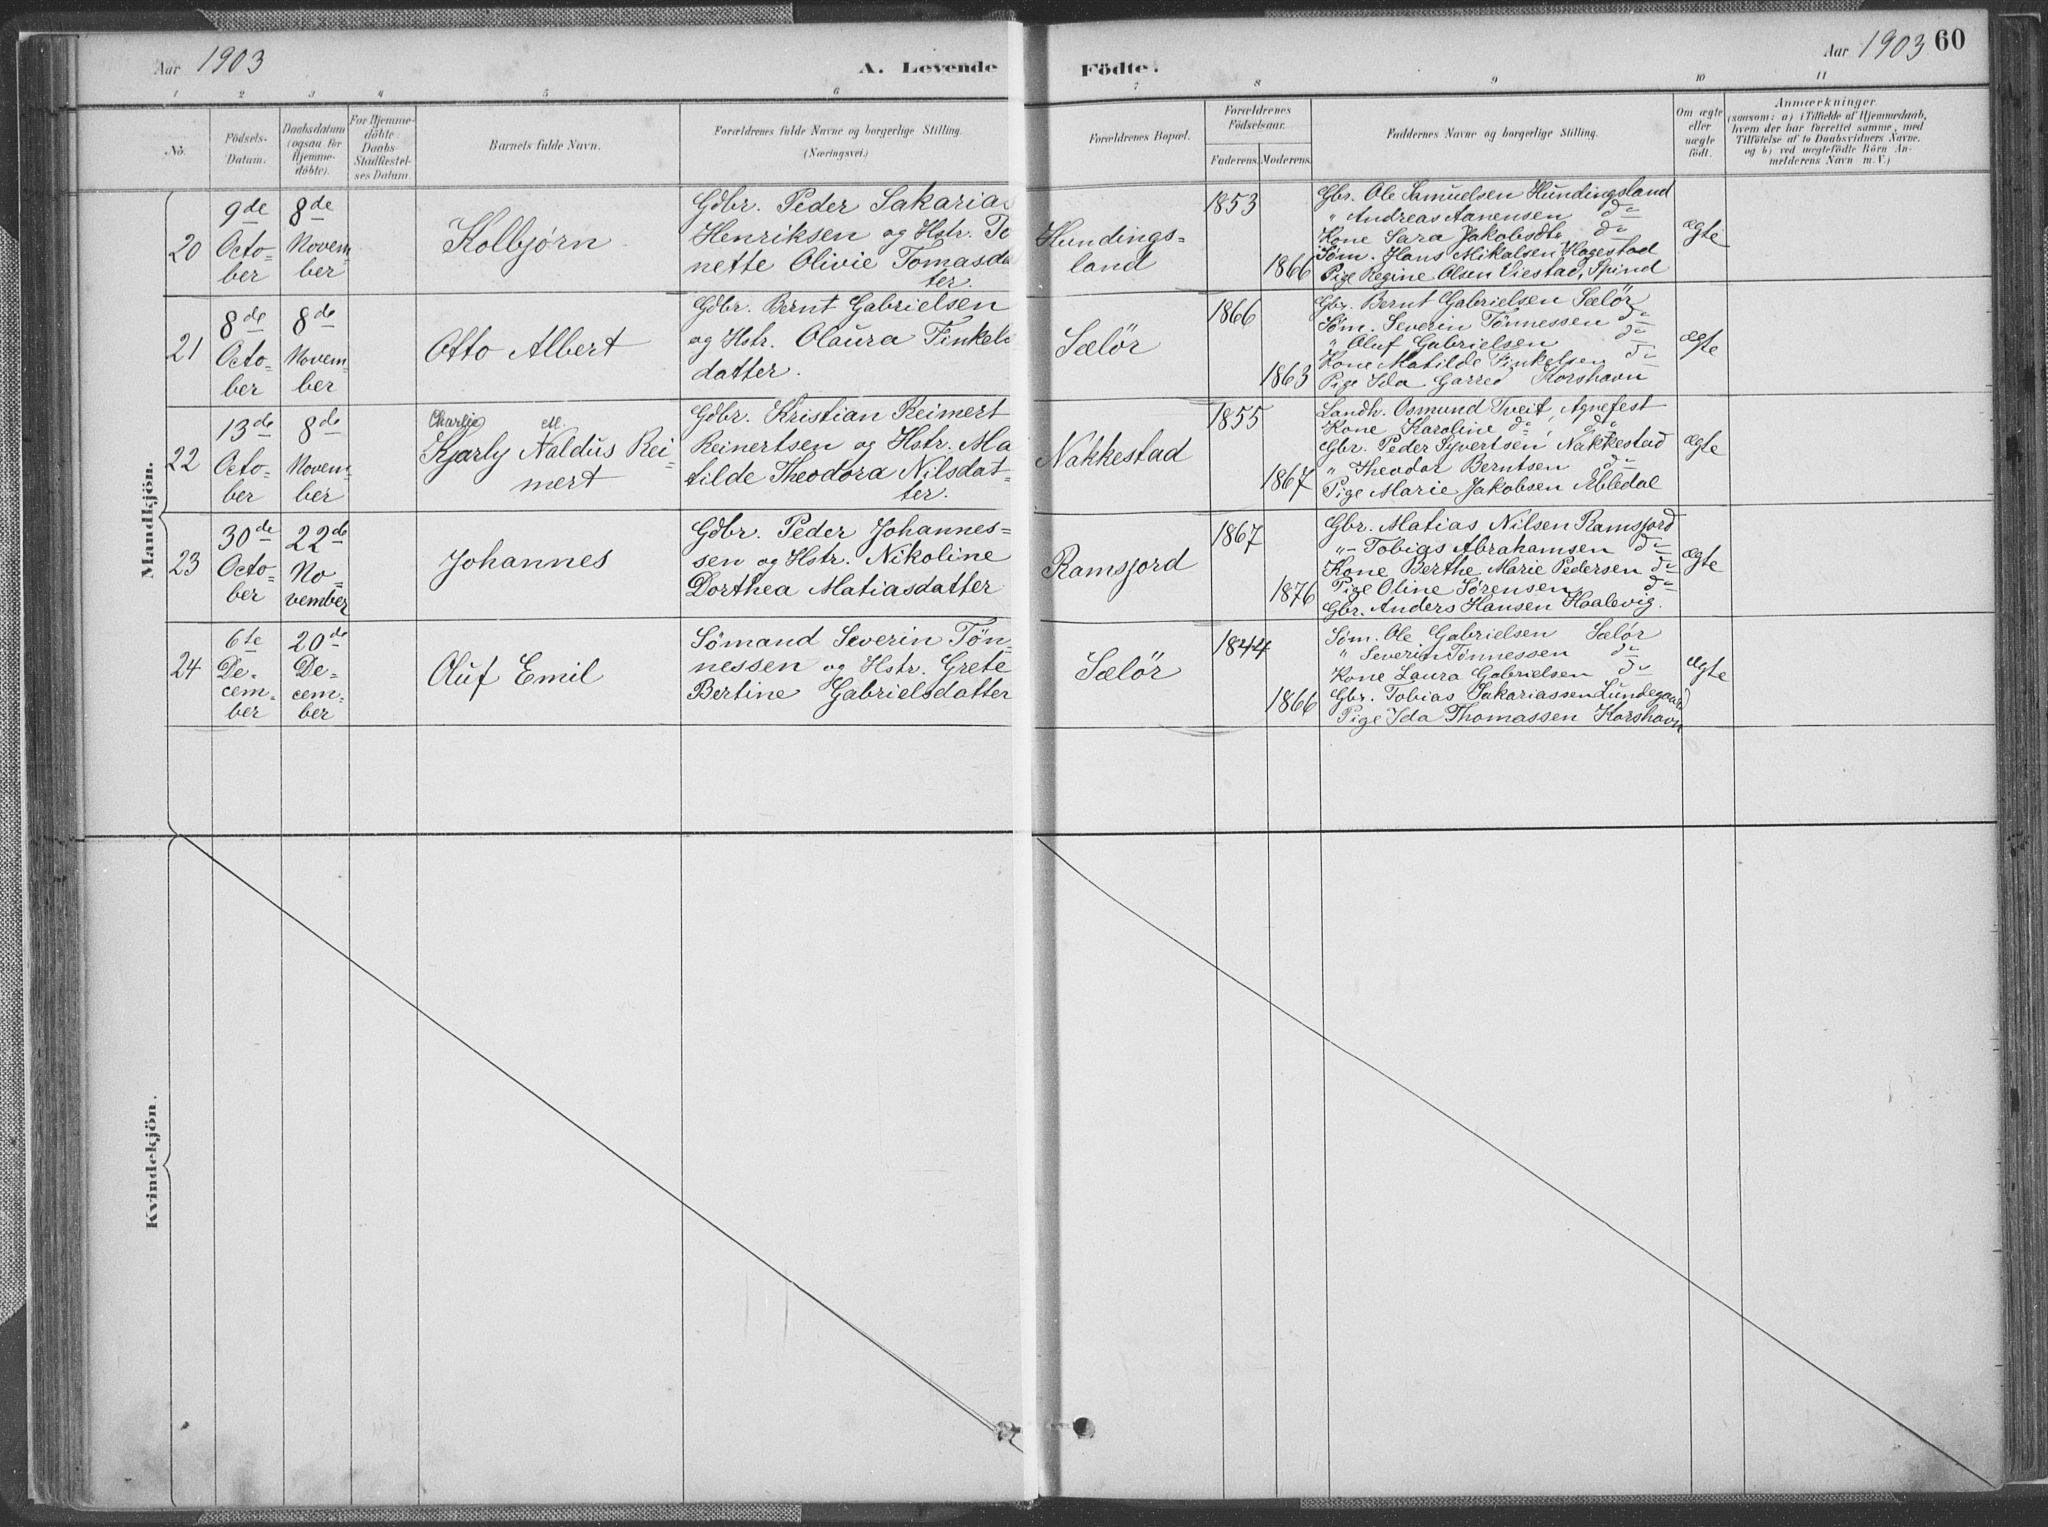 Aar 1903
A. Levende Födte.
Aar 1903
60
1 2 3 4 5 6 7 8 9 10 11
No.
Födsels-
Datum.
Daabsdatum
(ogsaa for
Hjemme-
døbte).
For Hjemme-
döbte
Daabs-
Stadfæstel-
ses Datum.
Barnets fulde Navn.
Forældrenes fulde Navne og borgerlige Stilling.
(Næringsvei.)
Forældrenes Bopæl.
Forældrenes
Födselsaar.
Faderens. Moderens.
Faddernes Navne og borgerlige Stilling.
Om ægte
eller
uægte
födt.
Anmærkninger
(saasom: a) i Tilfælde af Hjemmedaab,
hvem der har forrettet samme, med
Tilföielse af to Daabsvidners Navne.
og b) ved uægtefödte Börn An-
melderens Navn m. V.)
Mandkjön.
20
9de
Octo-
ber
8de
Novem
ber
Kolbjørn
Gdbr. Peder Sakarias
Henriksen og Hstr. To
nette Olivie Tomasda
ter.
Hundings-
land
1853
1866
Gbr. Ole Samuelsen Hundingsland
" Andreas Aanensen do
Kone Sara Jakobsdtr do
Söm. Hans Mikalsen Hagestad
Pige Regine Olsen Viestad, Spind
ægte
21
8de
Octo-
ber
8de
Novem-
ber
Otto Albert
Gdbr. Bernt Gabrielsen
og Hstr. Olaura Finkels
datter.
Sælör
1866
1863
Gbr. Bernt Gabrielsen Sælör
Söm. Severin Tönnessen do
" Oluf Gabrielsen do
Kone Matilde Finkelsen do
Pige Ida Garred Korshavn
ægte
22
13de
Octo-
ber
8de
Novem-
ber
Charlie M.
Kjarly Naldus Rei-
mert
Gdbr. Kristian Reimert
Reinertsen og Hstr. Ma
tilde Theodora Nilsdat-
ter.
Nakkestad
1855
1867
Landh. Osmund Tveit, Agnefest
Kone Karoline do, do
Gbr. Peder Syvertsen Nakkestad
" Theodor Berntsen do
Pige Marie Jakobsen Æbledal
ægte
23
30de
Octo-
ber
22de
No-
vember
Johannes
Gdbr. Peder Johannes-
sen og Hstr. Nikoline
Dorthea Matiasdatter
Ramsjord
1867
1876
Gbr. Matias Nilsen Ramsjord
"- Tobias Abrahamsen do
Kone Berthe Marie Pedersen do
Pige Oline Sörensen do
Gbr. Anders Hansen Haalevig.
ægte
24
6te
De-
cem-
ber
20de
De-
cem-
ber
Oluf Emil
Sömand Severin Tön-
nessen og Hstr. Grete
Bertine Gabrielsdatter
Sælör
1844
1866
Söm. Ole Gabrielsen Sælör
" Severin Tönnessen do
Kone Laura Gabrielsen do
Gbr. Tobias Sakariassen Lundegaard
Pige Ida Thomassen Korshavn
ægte
Kvindekjön.